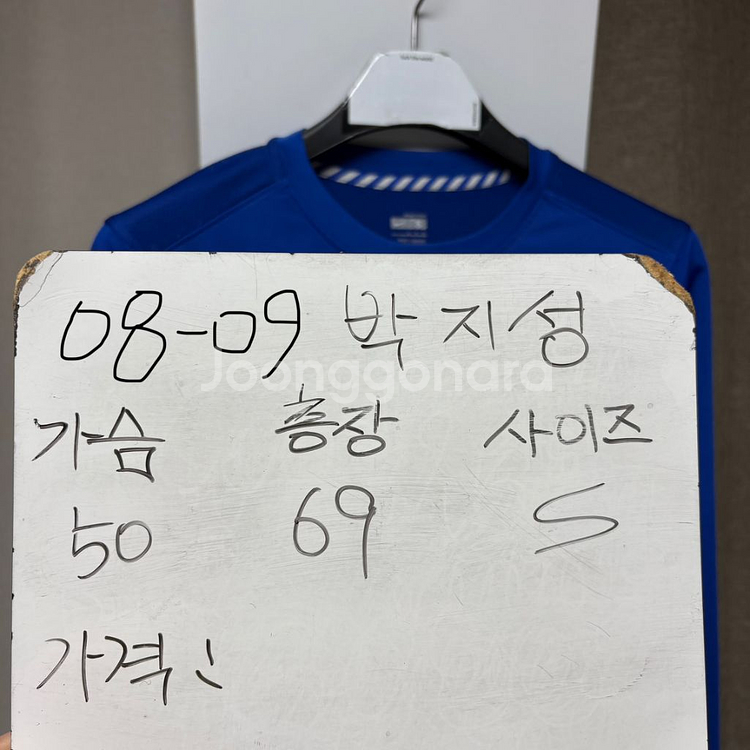 08-09 박지성
Joonggonara
가슴 총장 사이즈
50 69 S
가격: